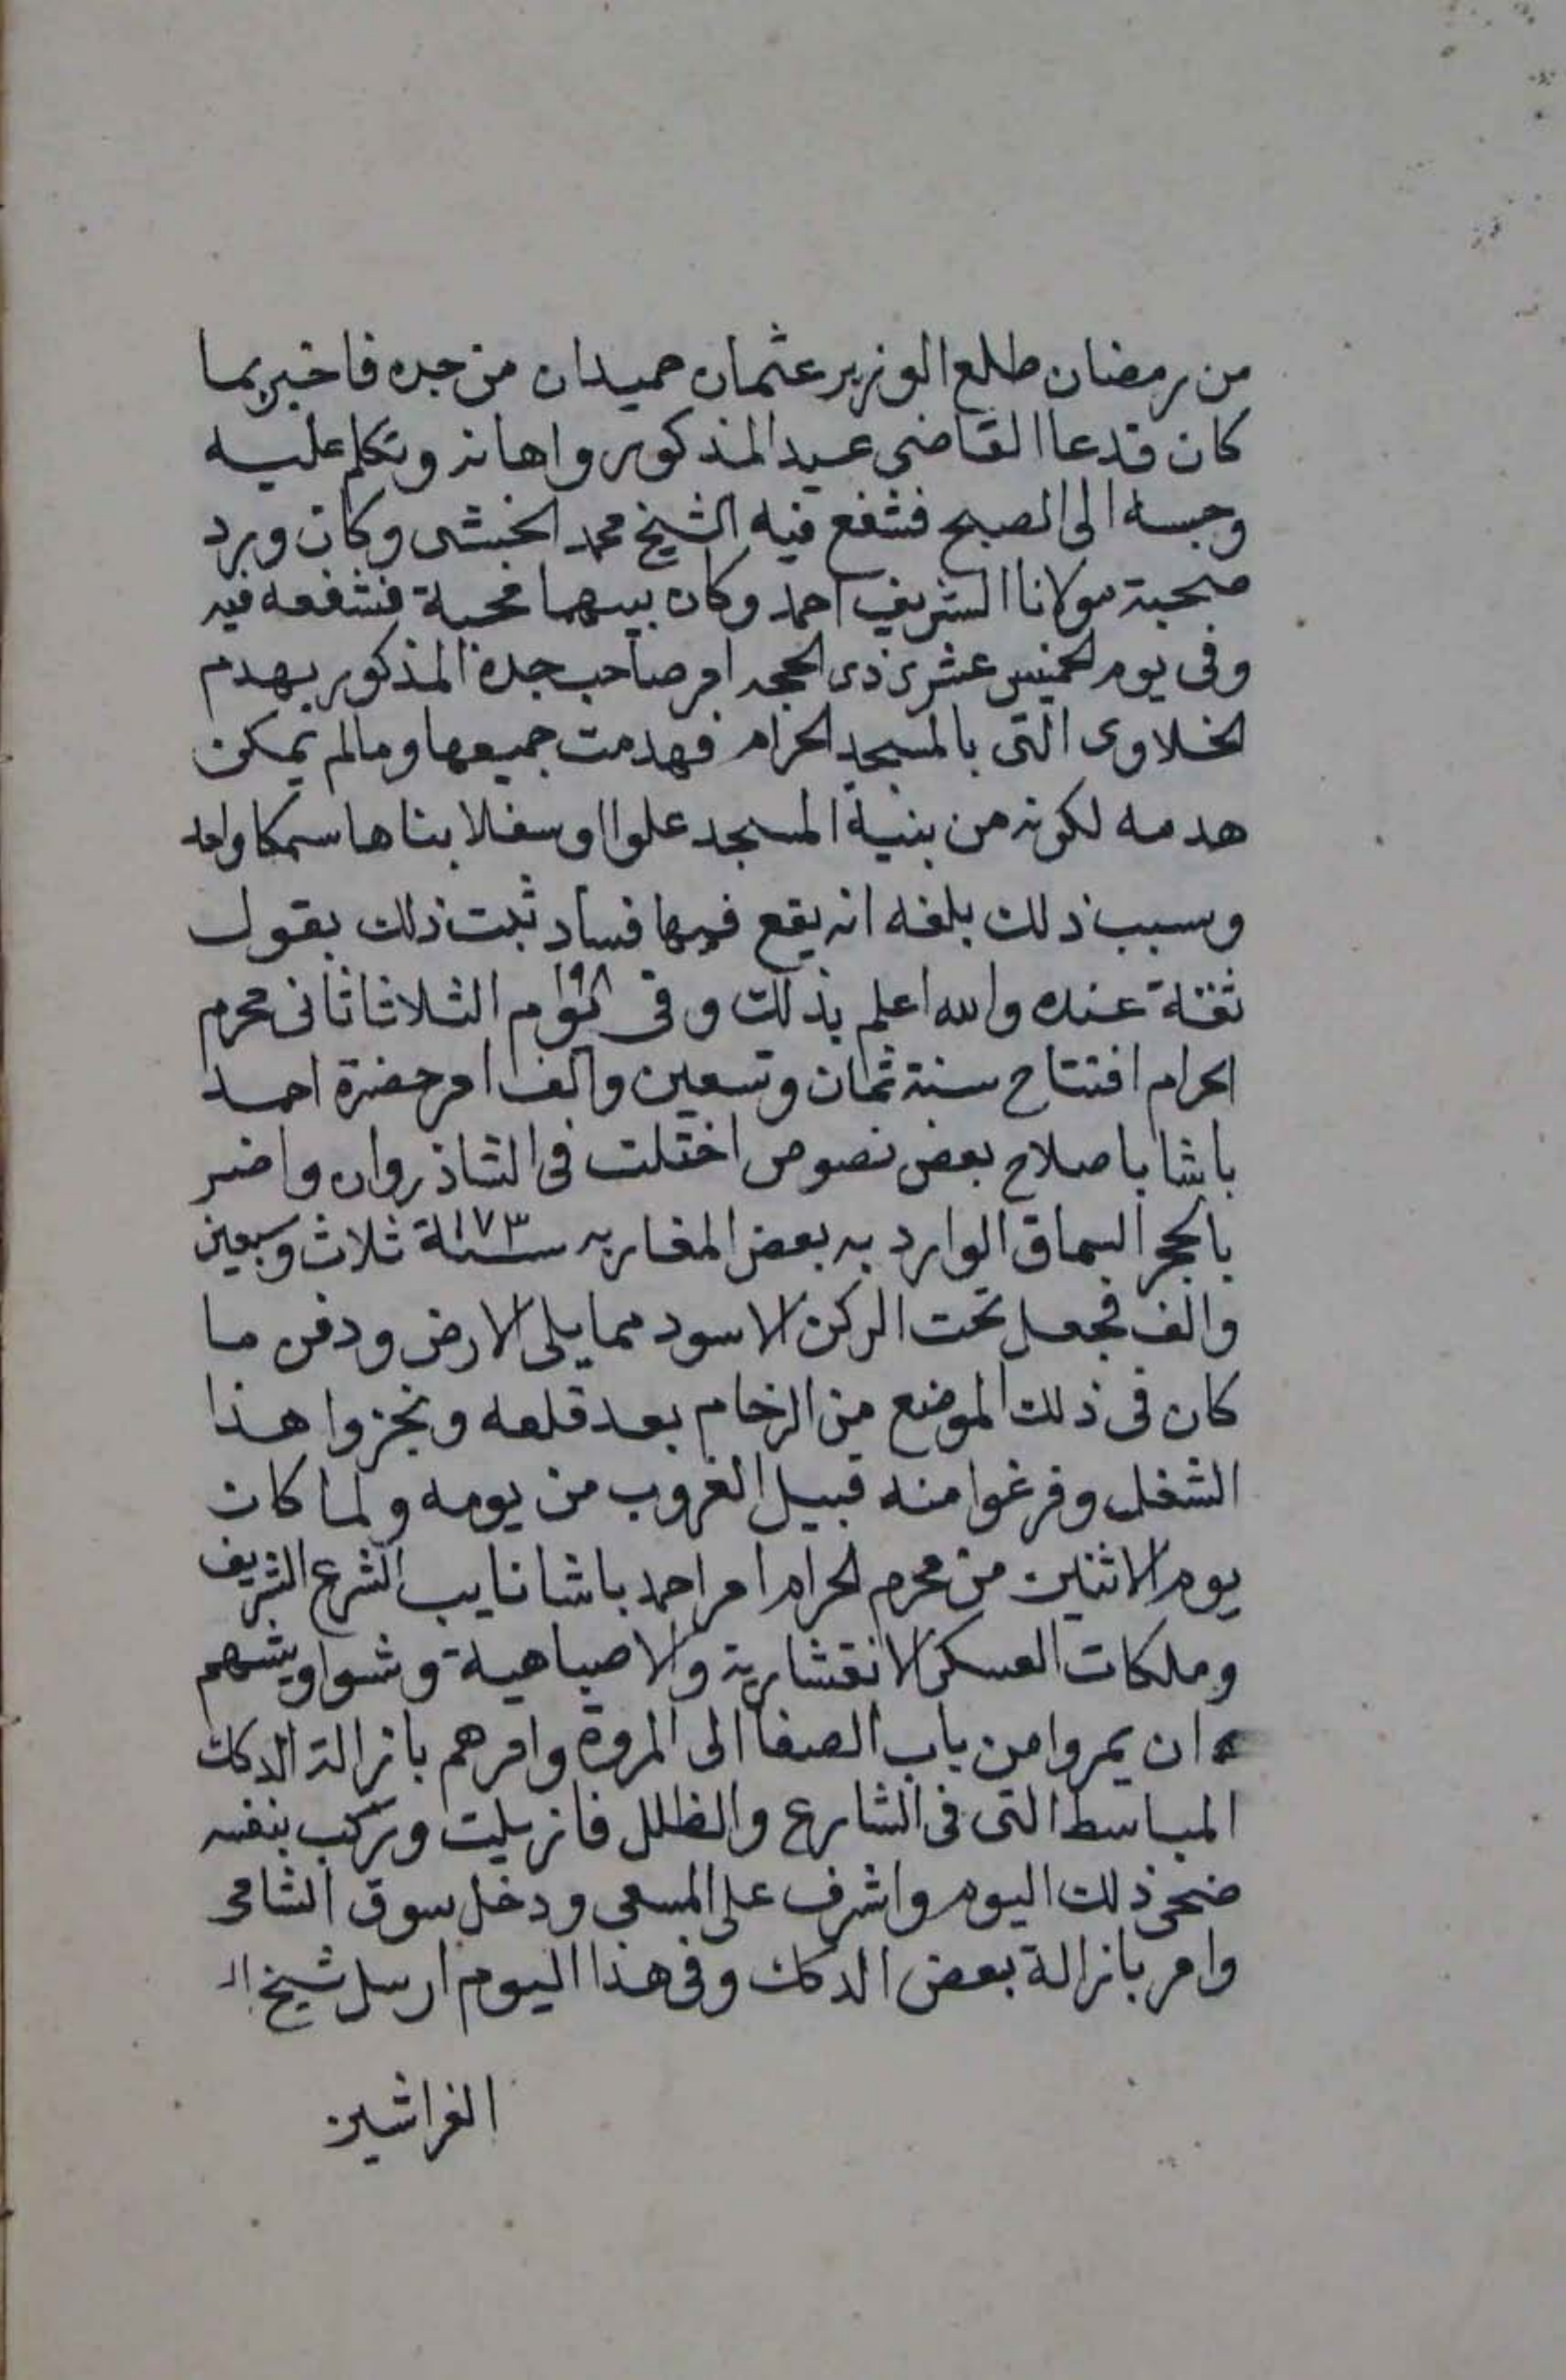 من رمضان طلع الوزير عثمان حميدان من جده فاخبر بما
كان فدعا القاضي عيد المذكور واهانه وتكلم عليه
وحبسه الى الصبح فشفع فيه الشيخ محمد الخبشى وكان ورد
صحبة مولانا الشريف احمد وكان بينهما محبة فشفعه فيه
وفى يوم الخميس عشرى ذى الحجه امر صاحب جدة المذكور بهدم
الخلاوى التى بالمسجد الحرام فهدمت جميعها ومالم يمكن
هدمه لكونه من بنية المسجد علوا اوسفلا بناها سمكا واحد
وسبب ذلك بلغه انه يقع فيها فساد ثبت ذلك بقول
ثقة عنده والله اعلم بذلك وفى يوم الثلاثا ثانى محرم
١٠٩٨
الحرام افتتاح سنة ثمان وتسعين والف امر حضرة احمد
باشا باصلاح بعض نصوص اختلت فى الشاذروان وامر
بالحجر السماق الوارد به بعض المغاربه سنة ١٠٧٣ ثلاث وسبعين
والف فجعل تحت الركن الاسود مما يلى الارض ودفن ما
كان فى ذلك الموضع من الرخام بعد قلعه ونجزوا هذا
الشغل وفرغوا منه قبيل الغروب من يومه ولما كان
يوم الاثنين من محرم الحرام امر احمد باشا نايب الشرع الشريف
وملكات العسكر الانقشارية والاصباهية وشواويشهم
ان يمروا من باب الصفا الى المروة وامرهم بازالة الدكك
المباسط التى فى الشارع والظلل فازيلت وركب بنفسه
ضحى ذلك اليوم واشرف على المسعى ودخل سوق الشامى
وامر بازالة بعض الدكك وفى هذا اليوم ارسل شيخ ال
الفراشين